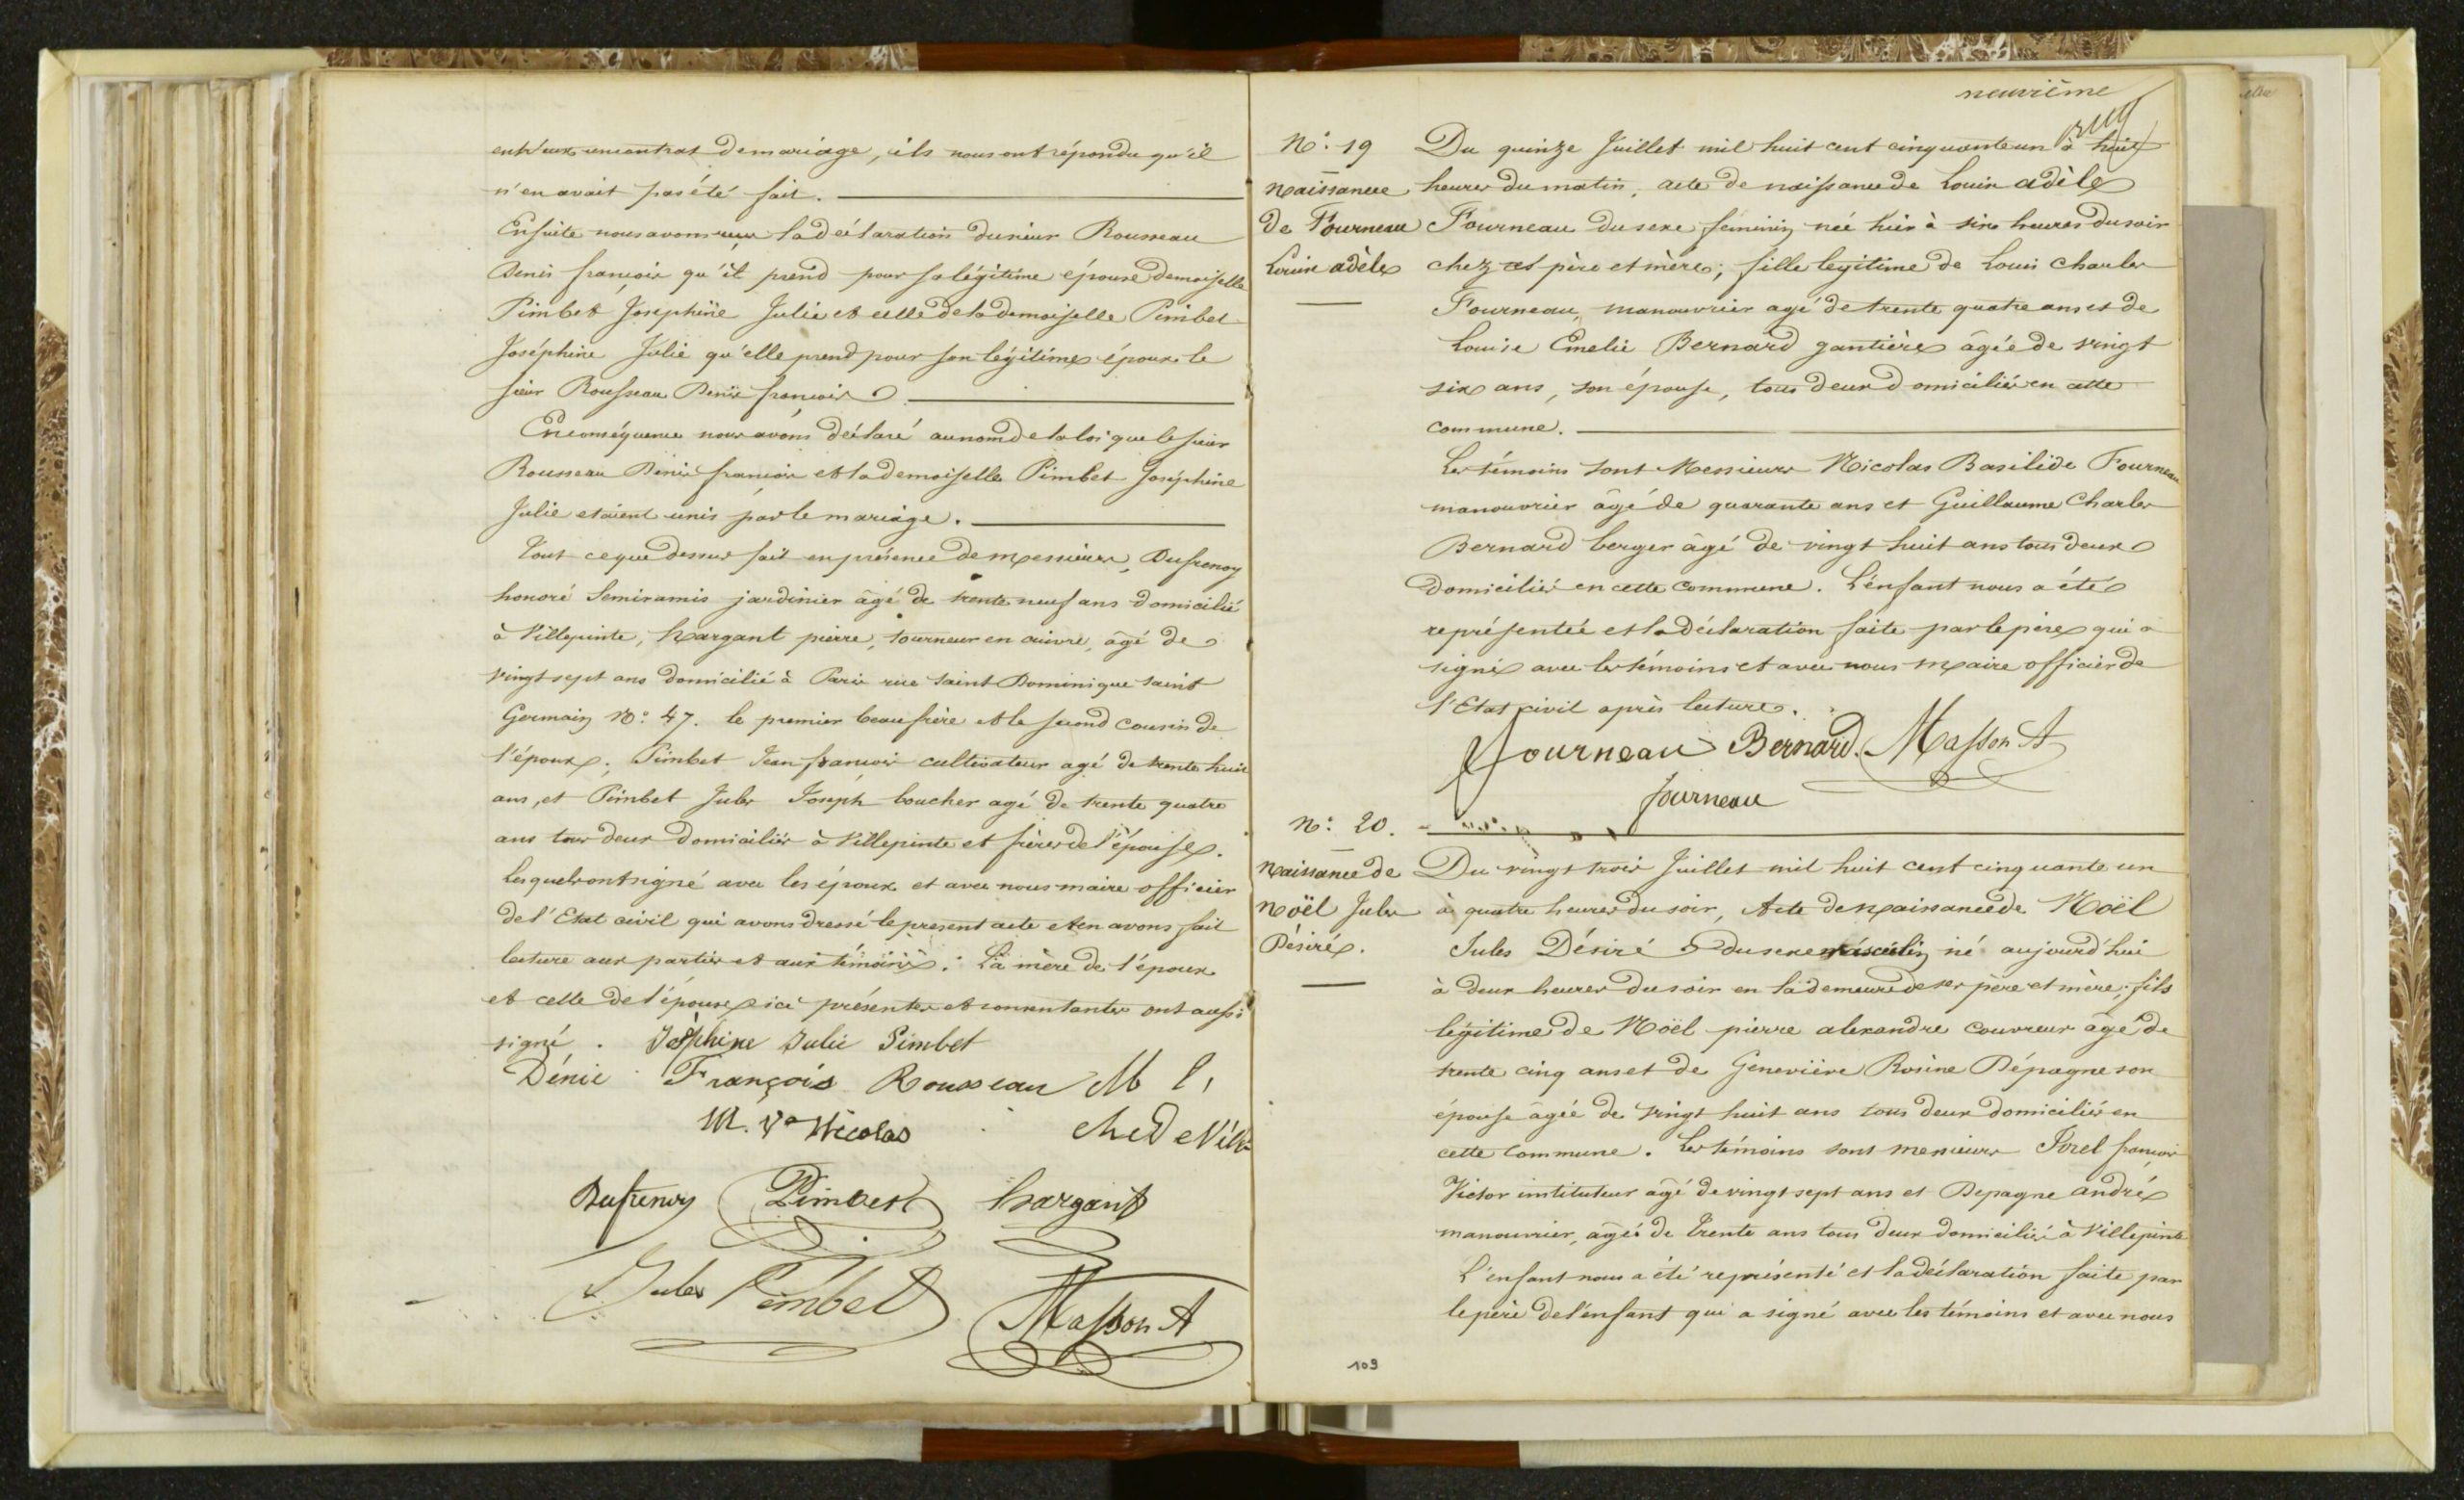 entr'eux un contrat de mariage, ils nous ont répondu qu'il
n'en avait pas été fait.
Ensuite nous avons reçu la déclaration du sieur Rousseau
Denis françois qu'il prend pour sa légitime épouse demoiselle
Pimbet Joséphine Julie et celle de la demoiselle Pimbet
Joséphine Julie qu'elle prend pour son légitime époux le
sieur Rousseau Denis françois
En conséquence nous avons déclaré au nom de la loi que le sieur
Rousseau Denis françois et la demoiselle Pimbet Joséphine
Julie etaient unis par le mariage.
Tout ce que dessus fait en présence de messieurs, Dufrenoy
honoré Semiramis jardinier âgé de trente neuf ans domicilié
à Villepinte, hargant pierre, tourneur en cuivre, âgé de
vingt sept ans domicilié à Paris rue saint Dominique saint
Germain No: 47. le premier beau frère et le second cousin de
l'époux; Pimbet Jean françois cultivateur agé de trente huit
ans, et Pimbet Jules Joseph boucher agé de trente quatre
ans tous deux domiciliés à Villepinte et frères de l'épouse.
Lesquels ont signé avec les époux et avec nous maire officier
de l'Etat civil qui avons dressé le present acte et en avons fait
lecture aux parties et aux témoins. La mère de l'époux
et celle de l'épouse ici présentes et consentantes ont aussi
signé. Joséphine Julie Pimbet
Dénis François Rousseau M P,
M. Ve Nicolas
Dufrenoy Pimbert hargant
Jules Pimbet Masson A
neuvième
No: 19 Du quinze Juillet mil huit cent cinquante un à huit
Naissance heures du matin, acte de naissance de Louise adèle
de Fourneau Fourneau du sexe féminin née hier à six heures du soir
Louise adèle chez ses père et mère; fille legitime de Louis charles
Fourneau, manouvrier agé de trente quatre ans et de
Louise Emelie Bernard gantière âgée de vingt
six ans, son épouse, tous deux domiciliés en cette
commune.
Les témoins sont Messieurs Nicolas Basilide Fourneau
manouvrier âgé de quarante ans et Guillaume Charles
Bernard berger âgé de vingt huit ans tous deux
domiciliés en cette commune. L'enfant nous a été
représentée et la déclaration faite par le père qui a
signé avec les témoins et avec nous maire officier de
l'Etat civil après lecture.
Fourneau Bernard. Masson A
fourneau
No: 20.
Naissance de Du vingt trois Juillet mil huit cent cinquante un
Noël Jules à quatre heures du soir, Acte de naissance de Noël
Désiré. Jules Désiré du sexe masculin né aujourd'hui
à deux heures du soir en la demeure de ses père et mère; fils
légitime de Noël pierre alexandre couvreur âgé de
trente cinq ans et de Geneviève Rosine Dépagne son
épouse âgée de vingt huit ans tous deux domiciliés en
cette commune. Les témoins sont messieurs françois
Victor instituteur âgé de vingt sept ans et Depagne andré
manouvrier, âgés de trente ans tous deux domiciliés à Villepinte
L'enfant nous a été représenté et la déclaration faite par
le père de l'enfant qui a signé avec les témoins et avec nous
109